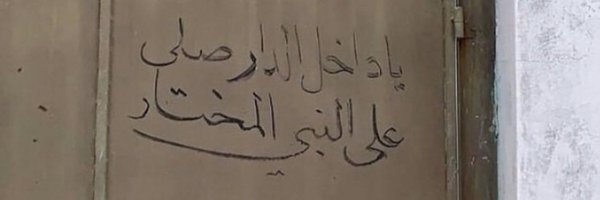 يا داخل الدار صلي
على النبي المختار